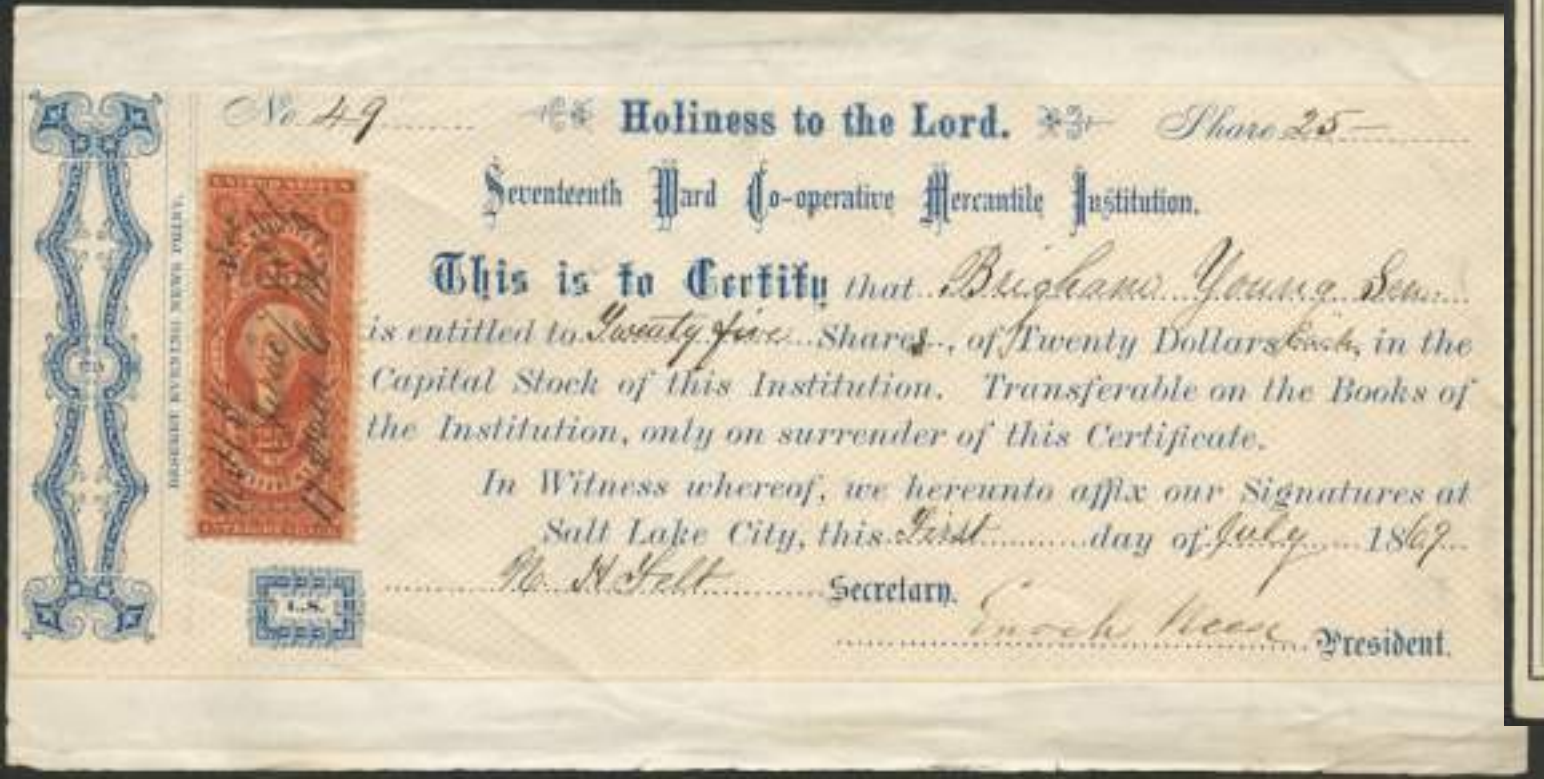 No. 49 Holiness to the Lord. Share 25-
Seventeenth Ward Co-operative Mercantile Institution.
This is to Certify that Brigham Young Sen.
is entitled to Twenty five Shares, of Twenty Dollars Each, in the
Capital Stock of this Institution. Transferable on the Books of
the Institution, only on surrender of this Certificate.
In Witness whereof, we hereunto affix our Signatures at
Salt Lake City, this First day of July 1869
N. H. Felt Secretary.
Enoch Reese President.
L.S.
DESERET EVENING NEWS PRINT.
UNITED STATES